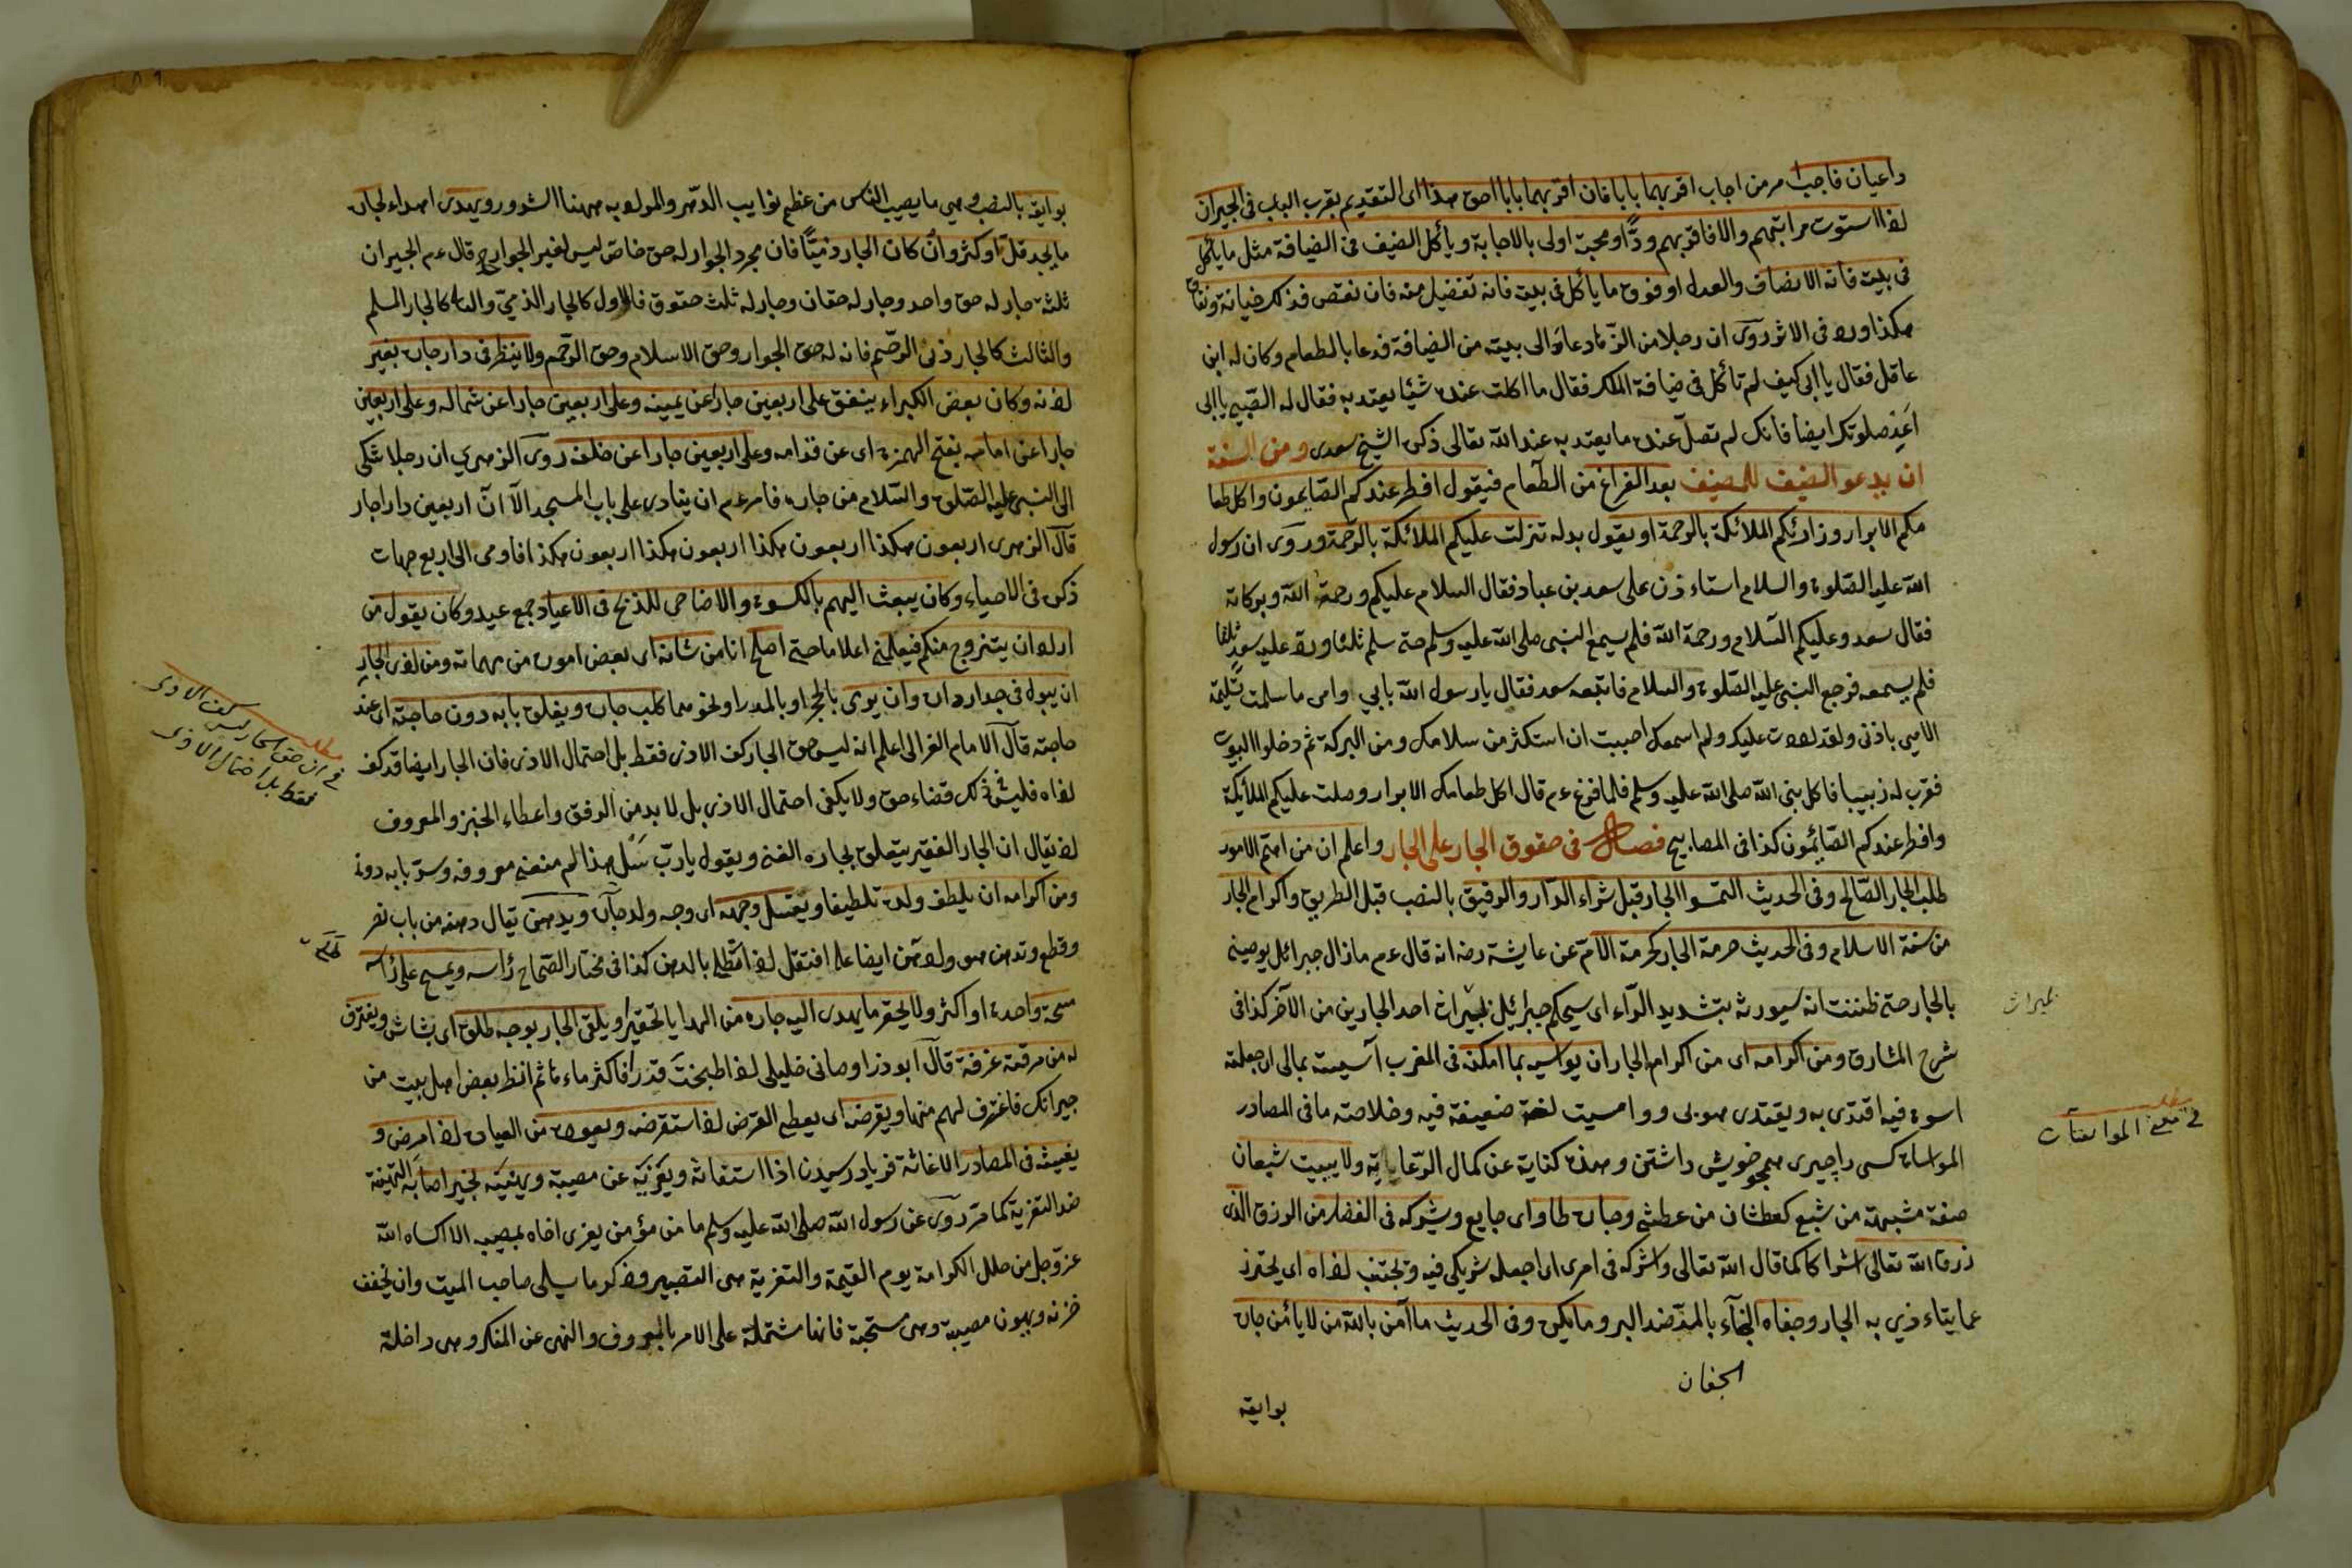 داعيان فاجب امر من اجاب اقربهما بابا فان اقربهما بابا احق هذا اى التقديم بقرب الباب فى الجيران
اذا استوت مراتبهم والا فاقربهم ودًّا ومحبة اولى بالاجابة ويأكل الضيف فى الضيافة مثل ما يأكل
فى بيته فانه الانصاف والعدل او فوق ما يأكل فى بيته فانه تفضيل منه فان نقص فذلك خيانة ونفاق
هكذا ورد فى الاثر روى ان رجلا من الزهاد عاد الى بيته من الضيافة فدعا بالطعام وكان له ابن
عاقل فقال يا ابى كيف لم تأكل فى ضيافة الملك فقال ما اكلت عنده شيئا يعتد به فقال له الصبى يا ابى
اعد صلوتك ايضا فانك لم تصل عنده ما يعتد به عند الله تعالى ذكره الشيخ سعدى ومن السنة
ان يدعو الضيف للمضيف بعد الفراغ من الطعام فيقول افطر عندكم الصايمون واكل طعا
مكم الابرار وزارتكم الملائكة بالرحمة او يقول بدله تنزلت عليكم الملائكة بالرحمة وروى ان رسول
الله عليه الصلوة والسلام استاءذن على سعد بن عباد فقال السلام عليكم ورحمة الله وبركاته
فقال سعد وعليكم السلام ورحمة الله فلم يسمع النبى صلى الله عليه وسلم حتى سلم ثلثا ورد عليه سعد ثلثا
فلم يسمعه فرجع النبى عليه الصلوة والسلام فاتبعه سعد فقال يا رسول الله بابي وامى ما سلمت تسليمة
الا هى باذنى ولقد رددت عليك ولم اسمعك احببت ان استكثر من سلامك ومن البركة ثم دخلوا البيت
فقرب له زبيبا فاكل نبى الله صلى الله عليه وسلم فلما فرغ عم قال اكل طعامك الابرار وصلت عليكم الملائكة
وافطر عندكم الصائمون كذا فى المصابيح فصل فى حقوق الجار على الجار واعلم ان من اهم الامور
طلب الجار الصالح وفى الحديث التمسوا الجار قبل شراء الدار والرفيق بالنصب قبل الطريق واكرام الجار
من سنة الاسلام وفى الحديث حرمة الجار كحرمة الام عن عايشة رضه انه قال عم ما زال جبرائل يوصينى
بالجار حتى ظننت انه سيورثه بتشديد الراء اى سيحكم جبرائيل بميراث احد الجارين من الآخر كذا فى
بميراث
شرح المشارق ومن اكرامه اى من اكرام الجار ان يواسيه بما امكنه فى المغرب آسيته بمالى اى جعلته
اسوة فيه اقتدى به ويقتدى هو بى وواسيت لغة ضعيفة فيه وخلاصته ما فى المصادر
مطلب
فى معنى المواسات
المواساة كسى را چيزى همچو خويش داشتن وهذه كناية عن كمال الرعاية ولا يبيت شبعان
صفة مشبهة من شبع كعطشان من عطش وجاره طاو اى جايع ويشركه فى الفضل من الرزق الذى
زرقه الله تعالى اشراكا كما قال الله تعالى واشركه فى امرى اى اجعله شريكى فيه ويجتنب اذاه اى يحترز
عما يتاءذى به الجار وجفاه الجفاء بالمد ضد البر وما يكره وفى الحديث ما آمن بالله من لا يأمن جاره
الجفان
بوايقه
بوايقه بالنصب وهى ما يصيب الناس من عظم نوايب الدهر والمراد به ههنا الشرور ويهدى اهداء لجاره
ما يجد قل او كثر وان كان الجار ذميًّا فان مجرد الجوار له حق خاص ليس لغير الجوار قال عم الجيران
ثلثة جار له حق واحد وجار له حقان وجار له ثلث حقوق فالاول كالجار الذمي والثانى كالجار المسلم
والثالث كالجار ذى الرحم فانه له حق الجوار وحق الاسلام وحق الرحم ولا ينظر فى دار جاره بغير
اذنه وكان بعض الكبراء ينفق على اربعين جارا عن يمينه وعلى اربعين جارا عن شماله وعلى اربعين
جارا عن امامه بفتح الهمزة اى عن قدامه وعلى اربعين جارا عن خلفه روى الزهري ان رجلا شكى
الى النبى عليه الصلوة والسلام من جاره فامر عم ان ينادى على باب المسجد الا ان اربعين دارا جار
قال الزهرى اربعون هكذا اربعون هكذا اربعون هكذا اربعون هكذا فاومى الى اربع جهات
ذكره فى الاحياء وكان يبعث اليهم بالكسوة والاضاحى للذبح فى الاعياد جمع عيد وكان يقول من
اراد ان يتزوج منكم فيعلمنى اعلاما حتى اصلح انا من شانه اى بعض اموره من مهماته ومن اذى الجار
ان يبول فى جدار داره وان يرمى بالحجر او بالمدر او نحوهما كلب جاره ويغلق بابه دون حاجته اى عند
حاجته قال الامام الغزالى اعلم انه ليس حق الجار كف الاذى فقط بل احتمال الاذى فان الجار ايضا قد كف
مطلب
فى ان حق الجار ليس كف الاذى
فقط بل احتمال الاذى
اذاه فليس فى ذلك قضاء حق ولا يكفى احتمال الاذى بل لا بد من الرفق واعطاء الخبز والمعروف
اذ يقال ان الجار الفقير يتعلق بجاره الغنى ويقول يا رب سل هذا لم منعنى معروفه وسد بابه دونى
ومن اكرامه ان يلطف ولده تلطيفا ويغسل وجهه اى وجه ولد جاره ويدهن يقال دهنه من باب نصر
وقطع وتدهن هو وادهن ايضا على افتعل اذا تطلى بالدهن كذا فى مختار الصحاح رأسه ويمسح على رأسه
مسحة واحدة او اكثر ولا يحقر ما يهدى اليه جاره من الهدايا تحقيرا ويلقى الجار بوجه طلق اى بشاش ويغترف
له من مرقته غرفة قال ابو ذر اوصانى خليلى اذا طبخت قدرا فاكثر ماءها ثم انظر بعض اهل بيت من
جيرانك فاغترف لهم منها ويقرضه اى يعطى القرض اذا استقرضه ويعوده من العيادة اذا مرض و
يغيثه فى المصادر الاغاثة فرياد رسيدن اذا استغاثه ويعزيه عن مصيبة ويهنيه لخير اصابه التهنئة
ضد التعزية كما مر روى عن رسول الله صلى الله عليه وسلم ما من مؤمن يعزى اخاه بمصيبة الا كساه الله
عز وجل من حلل الكرامة يوم القيمة والتعزية هى التصبير وذكر ما يسلى صاحب الميت وان يخفف
حزنه ويهون مصيبته وهى مستحبة فانها مشتملة على الامر بالمعروف والنهى عن المنكر وهى داخلة